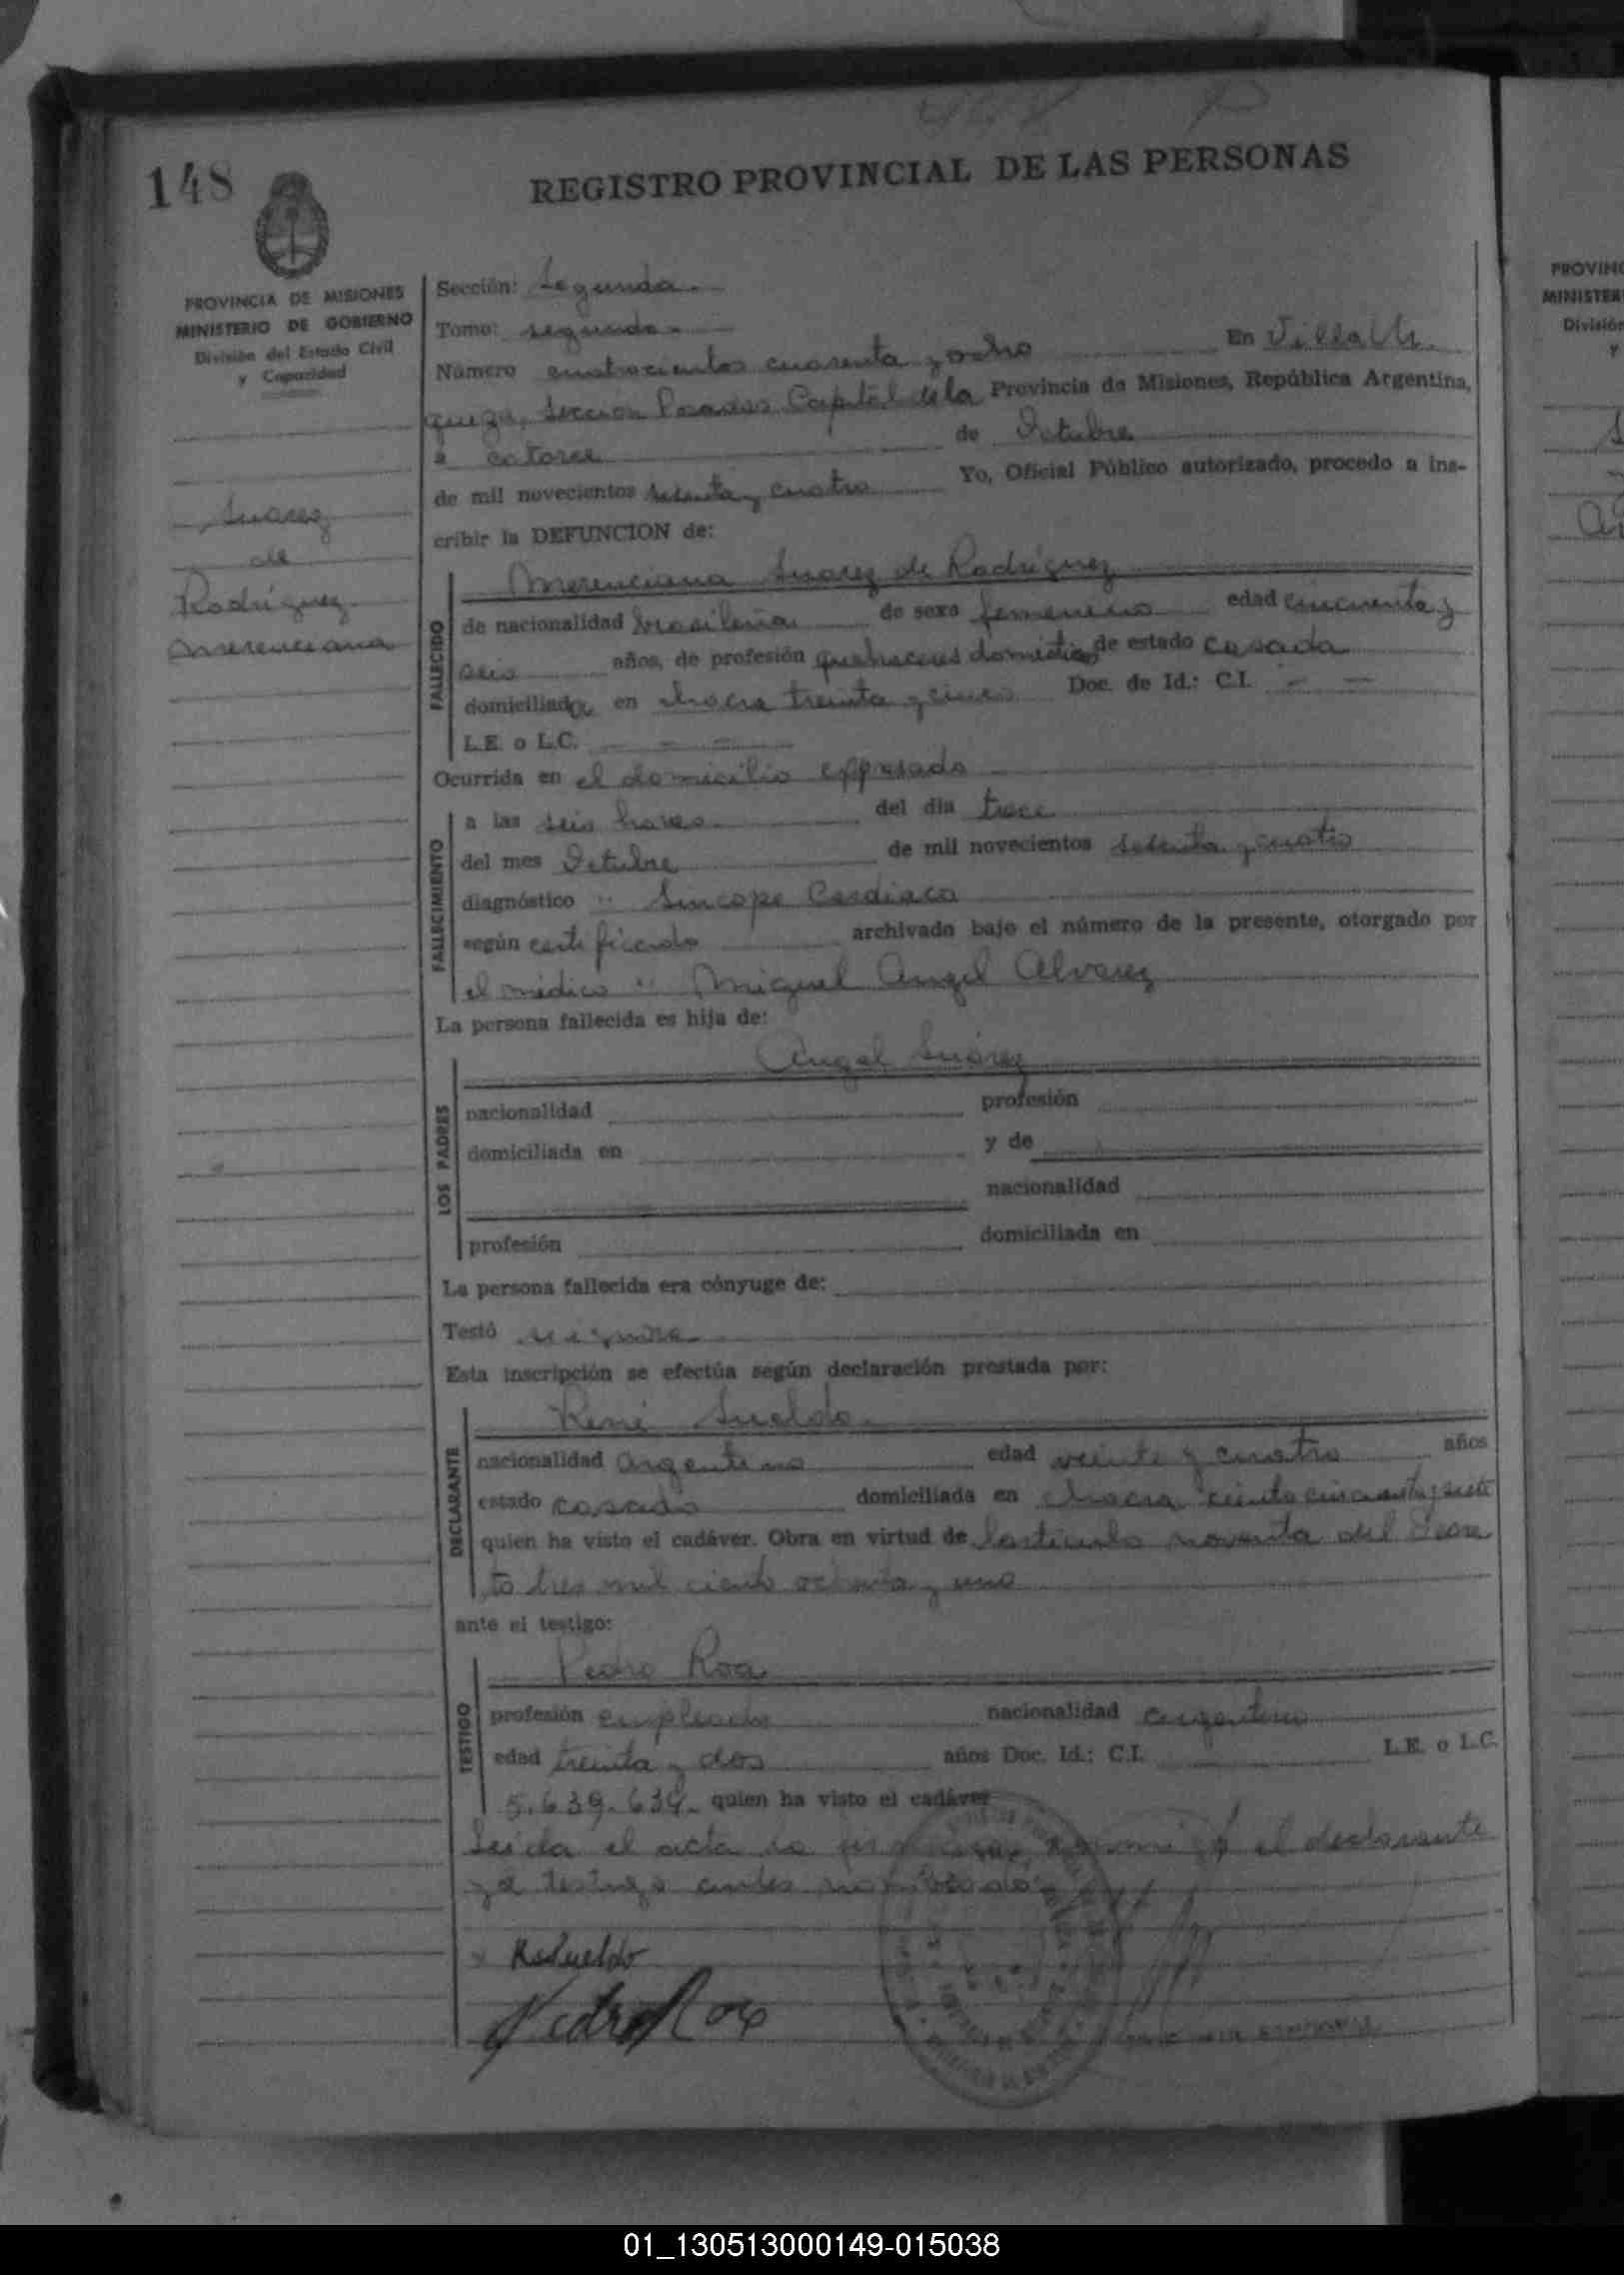 148
REGISTRO PROVINCIAL DE LAS PERSONAS
PROVINCIA DE MISIONES
MINISTERIO DE GOBIERNO
División del Estado Civil
y Capacidad
Suarez
de
Rodríguez
Merenciana
Sección: Segunda.
Tomo: segundo.
Número cuatrocientos cuarenta y ocho En Villa Ur
quiza, Sección Posadas Capital de la Provincia de Misiones, República Argentina,
a catorce de Octubre
de mil novecientos setenta y cuatro Yo, Oficial Público autorizado, procedo a ins-
cribir la DEFUNCION de:
FALLECIDO
Merenciana Suarez de Rodríguez
de nacionalidad brasileña de sexo femenino edad cincuenta y
seis años, de profesión quehaceres domésticos de estado casada
domiciliada en chacra treinta y cinco Doc. de Id.: C.I. - -
L.E. o L.C. - - -
Ocurrida en el domicilio expresado
FALLECIMIENTO
a las seis horas del día trece
del mes Octubre de mil novecientos setenta y cuatro
diagnóstico " Sincope Cardiaco
según certificado archivado bajo el número de la presente, otorgado por
el médico " Miguel Angel Alvarez
La persona fallecida es hija de:
LOS PADRES
Angel Suárez
nacionalidad profesión
domiciliada en y de
nacionalidad
profesión domiciliada en
La persona fallecida era cónyuge de:
Testó se ignora
Esta inscripción se efectúa según declaración prestada por:
DECLARANTE
René Sueldo.
nacionalidad argentino edad veinte y cuatro años
estado casado domiciliada en chacra ciento cincuenta y siete
quien ha visto el cadáver. Obra en virtud de lo articulo noventa del Decre
to tres mil ciento ochenta y uno
ante el testigo:
TESTIGO
Pedro Roa
profesión empleado nacionalidad argentino
edad treinta y dos años Doc. Id.: C.I. L.E. o L.C.
5.639.634. quien ha visto el cadáver
Leida el acta la el declarante
y el testigo antes
RSueldo
Pedro Roa
PROVINC
MINISTER
División
y
01_130513000149-015038